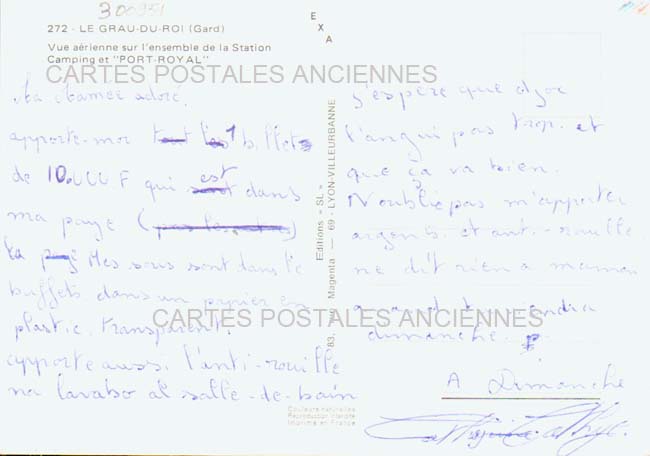 300951
272 - LE GRAU-DU-ROI (Gard)
Vue aérienne sur l'ensemble de la Station
Camping et "PORT-ROYAL"
CARTES POSTALES ANCIENNES
EXA
adoré
apporte-moi tout les 1 billets
de 10.000 F qui est dans
ma paye
Mes sous sont dans le
buffets dans un papier en
plastic transparent.
CARTES POSTALES ANCIENNES
apporte aussi l'anti-rouille
lavabo al salle-de-bain
Editions « SL »
83, rue Magenta — 69 - LYON-VILLEURBANNE
Couleurs naturelles
Reproduction interdite
Imprimé en France
j'espère que
pas trop. et
que ça va bien.
N'oublie pas m'apporter
argens. et anti-rouille
ne dit rien a maman
dimanche.
A Dimanche